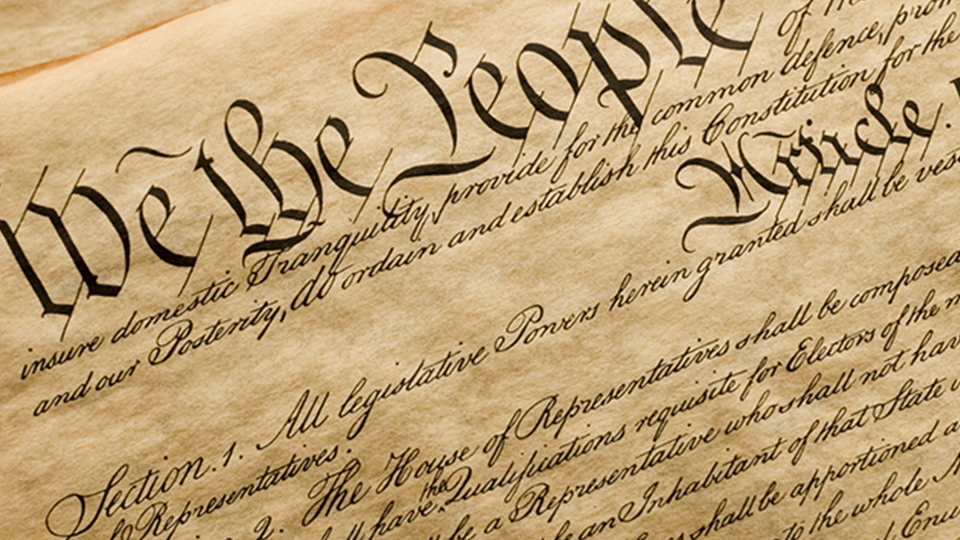 We the People
of the
insure domestic Tranquility, provide for the common defence,
and our Posterity, do ordain and establish this Constitution for the
Article.
Section. 1. All legislative Powers herein granted shall be
Representatives.
2. The House of Representatives shall be composed
have the Qualifications requisite for Electors of the
be a Representative who shall not
be an Inhabitant of that State
shall be apportioned
to the whole